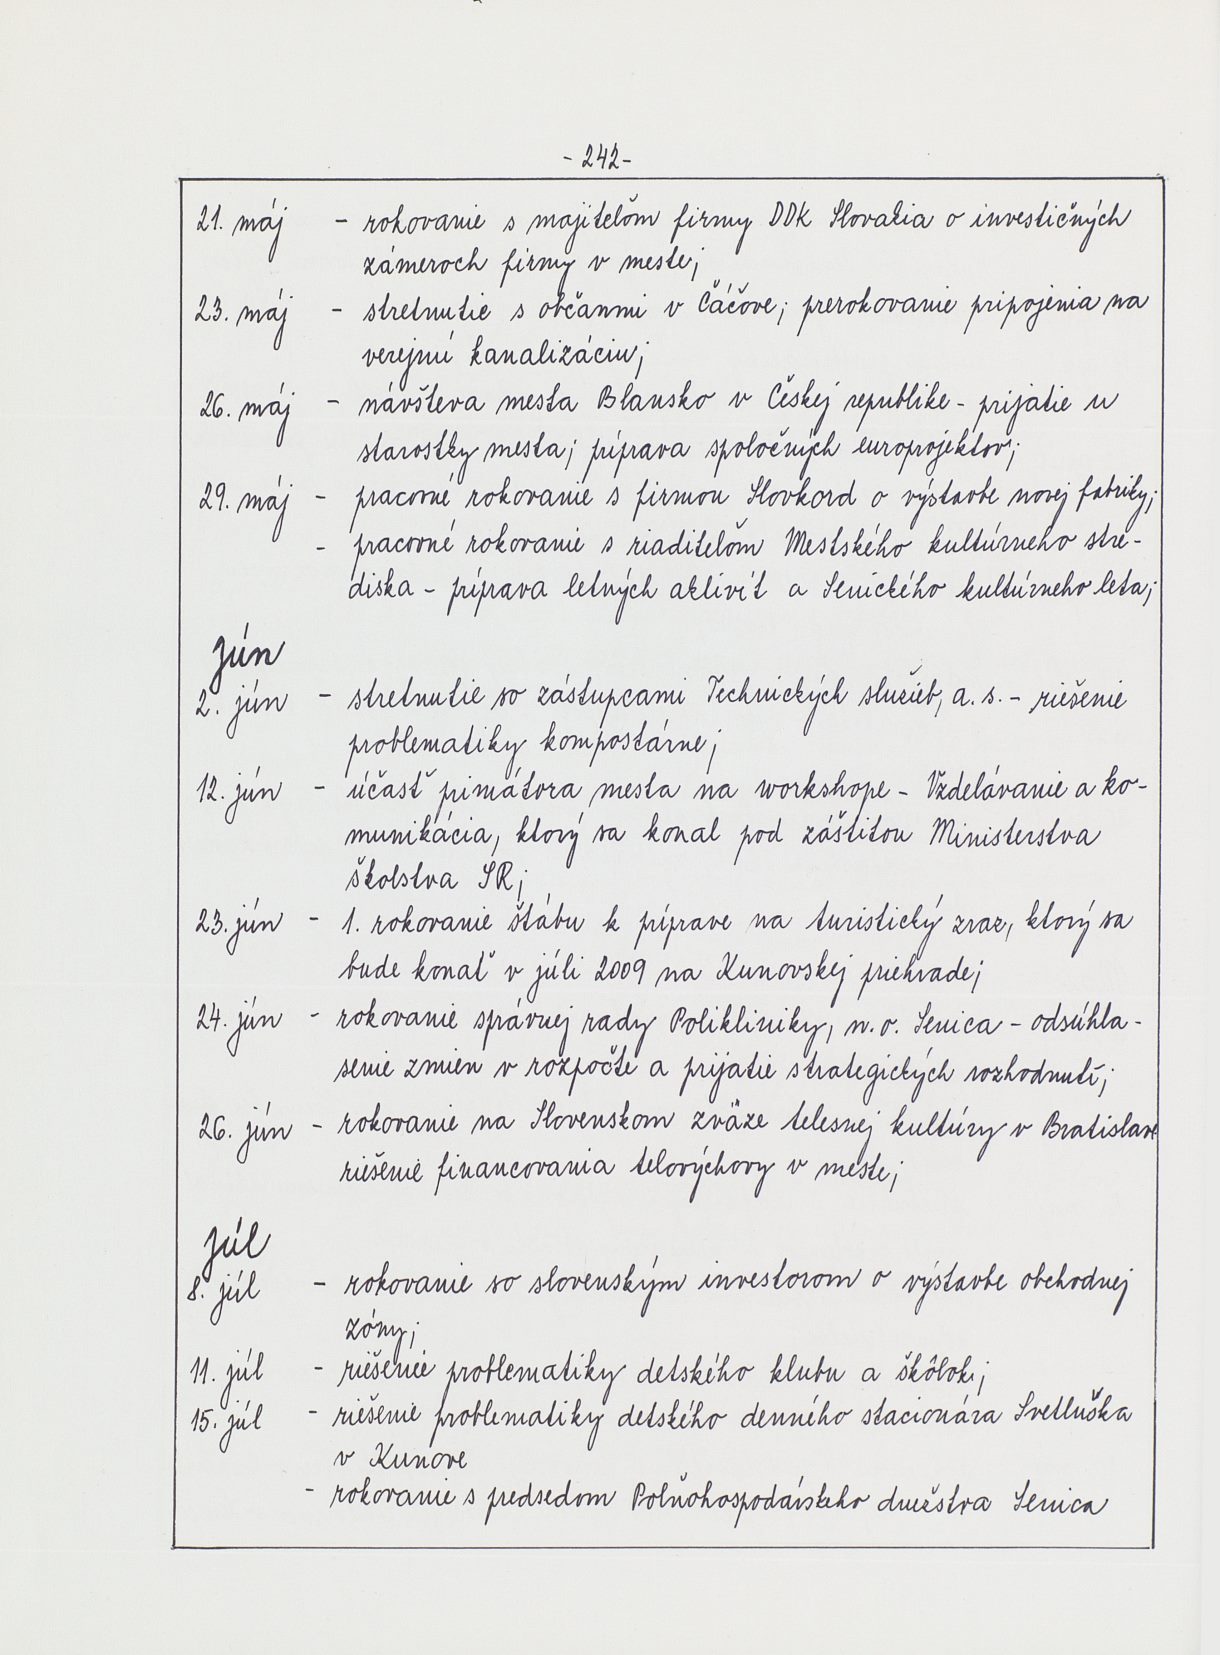 - 242 -
21. máj - rokovanie s majiteľom firmy DDK Slovakia o investičných
zámeroch firmy v meste;
23. máj - stretnutie s občanmi v Čáčove; prerokovanie pripojenia na
verejnú kanalizáciu;
26. máj - návšteva mesta Blansko v Českej republike - prijatie u
starostky mesta; príprava spoločných europrojektov;
29. máj - pracovné rokovanie s firmou Slovkord o výstavbe novej fabriky;
- pracovné rokovanie s riaditeľom Mestského kultúrneho stre-
diska - príprava letných aktivít a Senického kultúrneho leta;
Jún
2. jún - stretnutie so zástupcami Technických služieb, a. s. - riešenie
problematiky kompostárne;
12. jún - účasť primátora mesta na workshope - Vzdelávanie a ko-
munikácia, ktorý sa konal pod záštitou Ministerstva
školstva SR;
23. jún - 1. rokovanie štábu k príprave na turistický zraz, ktorý sa
bude konať v júli 2009 na Kunovskej priehrade;
24. jún - rokovanie správnej rady Polikliniky, n. o. Senica - odsúhla-
senie zmien v rozpočte a prijatie strategických rozhodnutí;
26. jún - rokovanie na Slovenskom zväze telesnej kultúry v Bratislave
riešenie financovania telovýchovy v meste;
Júl
8. júl - rokovanie so slovenským investorom o výstavbe obchodnej
zóny;
11. júl - riešenie problematiky detského klubu a škôlok;
15. júl - riešenie problematiky detského denného stacionára Svetluška
v Kunove
- rokovanie s predsedom Poľnohospodárskeho družstva Senica